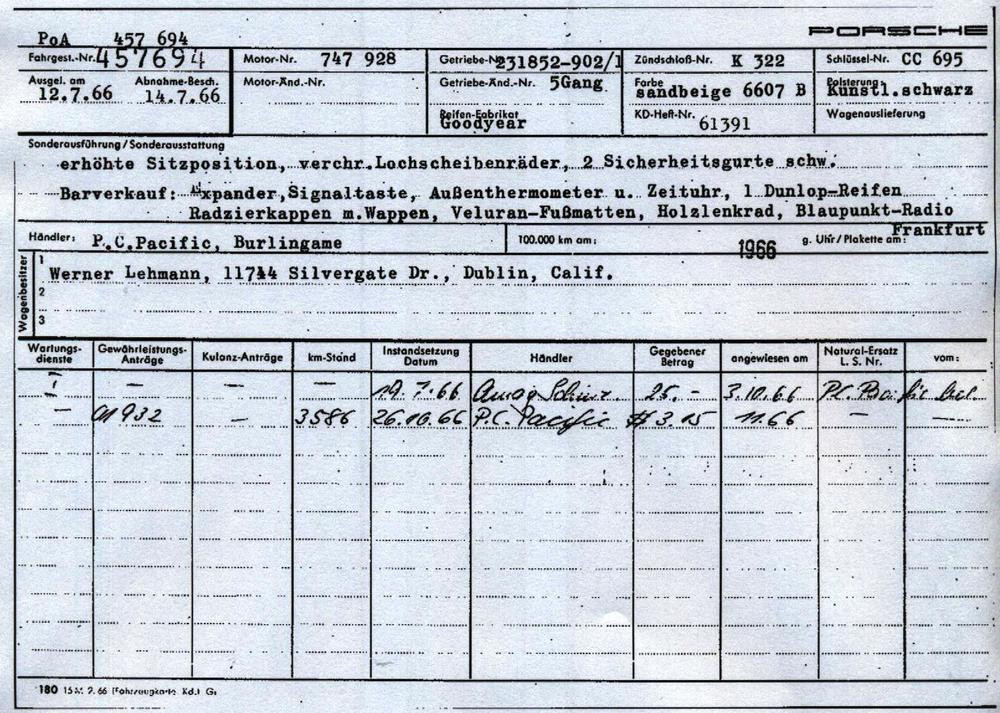 PORSCHE
PoA 457 694
Fahrgest.-Nr. 457694 Motor-Nr. 747 928 Getriebe-Nr. 231852-902/1 Zündschloß-Nr. K 322 Schlüssel-Nr. CC 695
Ausgel. am 12.7.66 Abnahme-Besch. 14.7.66 Motor-Änd.-Nr. Getriebe-Änd.-Nr. 5Gang Farbe sandbeige 6607 B Polsterung: Kunstl.schwarz
Reifen-Fabrikat Goodyear KD-Heft-Nr. 61391 Wagenauslieferung
Sonderausführung/Sonderausstattung
erhöhte Sitzposition, verchr.Lochscheibenräder, 2 Sicherheitsgurte schw.
Barverkauf: Expander,Signaltaste, Außenthermometer u. Zeituhr, 1 Dunlop-Reifen
Radzierkappen m.Wappen, Veluran-Fußmatten, Holzlenkrad, Blaupunkt-Radio
Frankfurt
Händler: P.C.Pacific, Burlingame 100.000 km am: 1966 g. Uhr/Plakette am:
Wagenbesitzer
1 Werner Lehmann, 11744 Silvergate Dr., Dublin, Calif.
2
3
Wartungs-dienste Gewährleistungs-Anträge Kulanz-Anträge km-Stand Instandsetzung Datum Händler Gegebener Betrag angewiesen am Natural-Ersatz L. S. Nr. vom:
— — — — 19.7.66 Amag 25.- 3.10.66
— 01932 — 3586 26.10.66 P.C. Pacific $ 3.15 11.66 — —
180 15 M. 2. 66 (Fahrzeugkarte Kd.) Gs